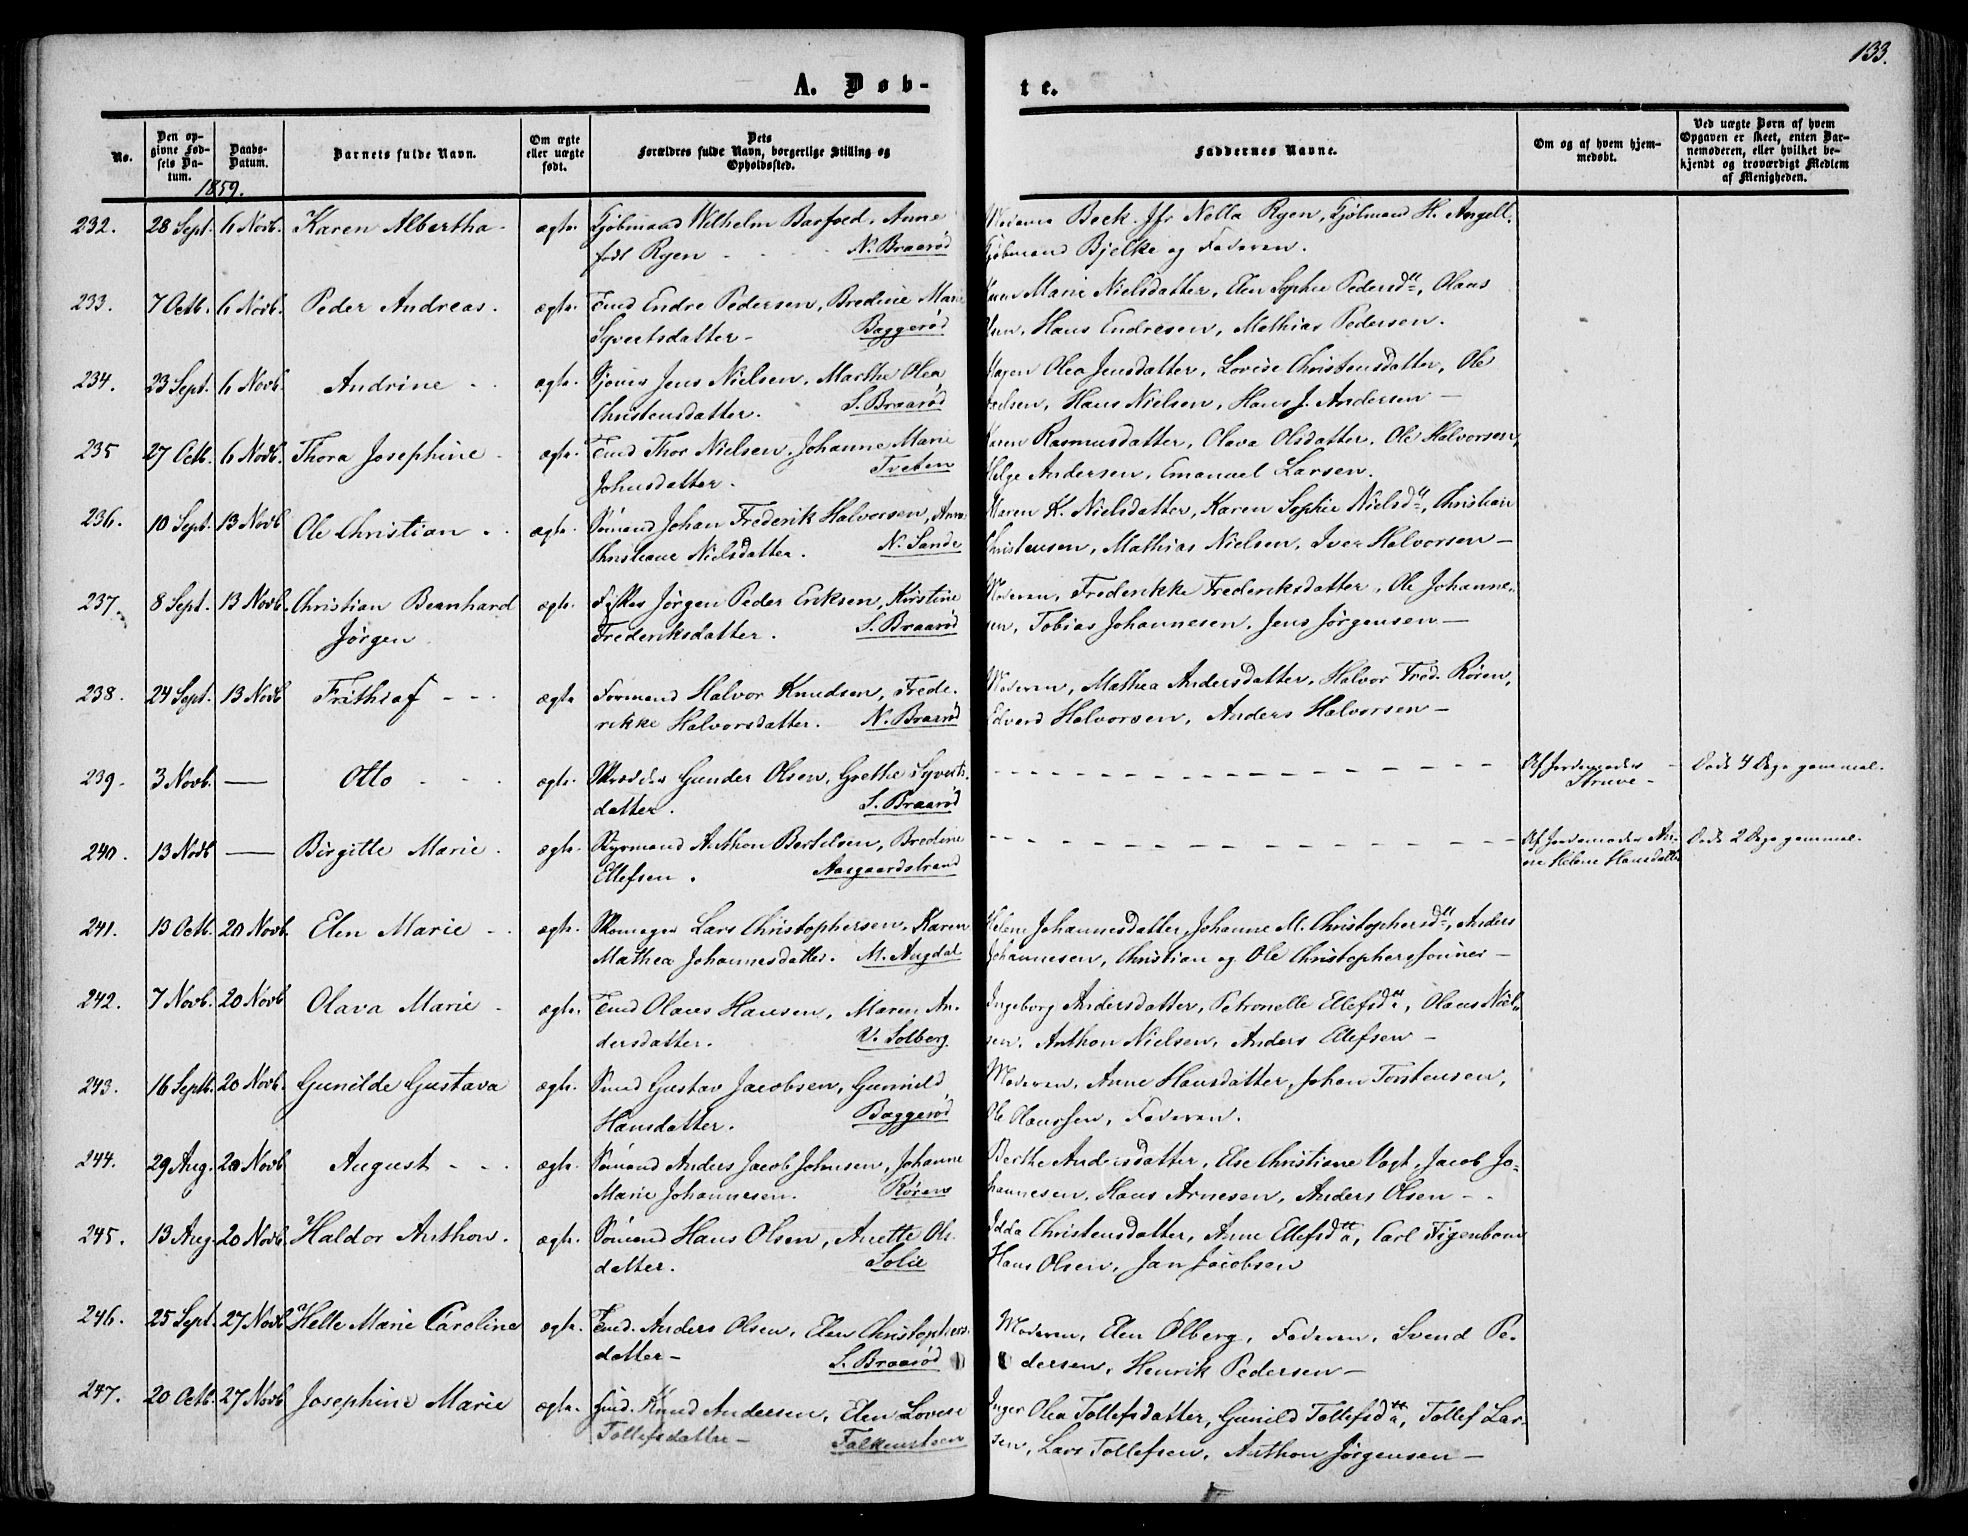 133.
A. Døb-
te.
No.
Den op-
givne Fød-
sels Da-
tum.
Daabs-
Datum.
Barnets fulde Navn.
Om ægte
eller uægte
født.
Dets
Forældres fulde Navn, borgerlige Stilling og
Opholdssted.
Faddernes Navne.
Om og af hvem hjem-
medøbt.
Ved uægte Børn af hvem
Opgaven er skeet, enten Bar-
nemoderen, eller hvilket be-
kjendt og troværdigt Medlem
af Menigheden.
1859.
232. 28 Sept. 6 Novb. Karen Albertha - ægte. Kjøbmand Wilhelm Barfoed, Anne
født Ryen - N. Braarød
Madame Beck. Jfr Nella Ryen, Kjøbmand H. Angell,
Kjøbmand Bjelke og Faderen.
233. 7 Octb. 6 Novb. Peder Andreas. ægte. Endre Pedersen, Bredine Marie
Syvertsdatter - Baggerød
Marie Nielsdatter, Elen Sophie Pedersdtr, Olaus
Hans Endresen, Mathias Pedersen.
234. 23 Sept. 6 Novb. Andrine - ægte. Jens Nielsen, Marthe Olea
Christensdatter. S. Braarød
Olea Jensdatter, Lovise Christensdatter, Ole
Hans Nielsen, Hans J. Andersen -
235 27 Octb. 6 Novb. Thora Josephine - ægte. Thor Nielsen, Johanne Marie
Johnsdatter. Tveten
Karen Rasmusdatter, Olava Olsdatter, Ole Halvorsen,
Helge Andersen, Emanuel Larsen.
236. 10 Sept. 13 Novb Ole Christian. ægte. Sømand Johan Frederik Halvorsen, Anne
Christiane Nielsdatter. N. Sande
Maren K. Nielsdatter, Karen Sophie Nielsdtr, Christian
Christensen, Mathias Nielsen, Iver Halvorsen -
237. 8 Sept. 13 Novb. Christian Bernhard ægte. Fisker Jørgen Peder Eriksen, Kirstine
Jørgen Frederiksdatter. S. Braarød
Moderen, Frederikke Frederiksdatter, Ole Johanne-
sen, Tobias Johannesen, Jens Jørgensen -
238. 24 Sept. 13 Novb Frithiof - - ægte Formand Halvor Knudsen, Frede-
rikke Halvorsdatter. N. Braarød
Moderen, Mathea Andersdatter, Halvor Fred. Røren,
Edvard Halvorsen, Anders Halvorsen -
239. 3 Novb. — Otto - - - ægte. Skræder Gunder Olsen, Grethe Syverts-
datter. S. Braarød
Af Jordemoder
Struve
Døde 4 Dage gammel.
240. 13 Novb — Birgitte Marie. ægte. Styrmand Anthon Bertelsen, Bredine
Ellefsen. Aasgaardstrand
Af Jordemoder An-
ne Helene Hansdatter
Døde 2 Dage gammel.
241. 13 Octb. 20 Novb. Elen Marie - - ægte. Skomager Lars Christophersen, Karen
Mathea Johannesdatter. M. Augdal
Helene Johannesdatter, Johanne M. Christophersdtr, Anders
Johannesen, Christian og Ole Christopherssønner -
242. 7 Novb. 20 Novb Olava Marie - ægte. Olaus Hansen, Maren An-
dersdatter. V. Solberg.
Ingeborg Andersdatter, Petronelle Ellefsdtr, Olaus Niel-
sen, Anthon Nielsen, Anders Ellefsen -
243. 16 Septb. 20 Novb. Gunilde Gustava ægte. Gustav Jacobsen, Gunnild
Hansdatter. Baggerød
Moderen, Anne Hansdatter, Johan Torstensen,
Ole Olaussen, Faderen.
244. 29 Aug. 20 Novb August - - - ægte. Sømand Anders Jacob Johnsen, Johanne
Marie Johannesen. Røren
Berthe Andersdatter, Else Christiane Vogt, Jacob Jo-
hannesen, Hans Arnesen, Anders Olsen - -
245. 13 Aug. 20 Novb. Haldor Anthon. ægte. Sømand Hans Olsen, Anette Ols-
datter. Solie
Idda Christensdatter, Anne Ellefsdtr, Carl Figenbom
Hans Olsen, Jan Jacobsen
246. 25 Sept. 27 Novb Helle Marie Caroline ægte. Anders Olsen, Elen Christophers-
datter - S. Braarød
Moderen, Elen Ølberg, Faderen, Svend Pe-
dersen, Henrik Pedersen -
247. 20 Octb. 27 Novb Josephine Marie ægte. Knud Andersen, Elen Lovise
Tollefsdatter - Falkensteen
Inger Olea Tollefsdatter, Gunild Tollefsdtr, Tollef Lar-
sen, Lars Tollefsen, Anthon Jørgensen -